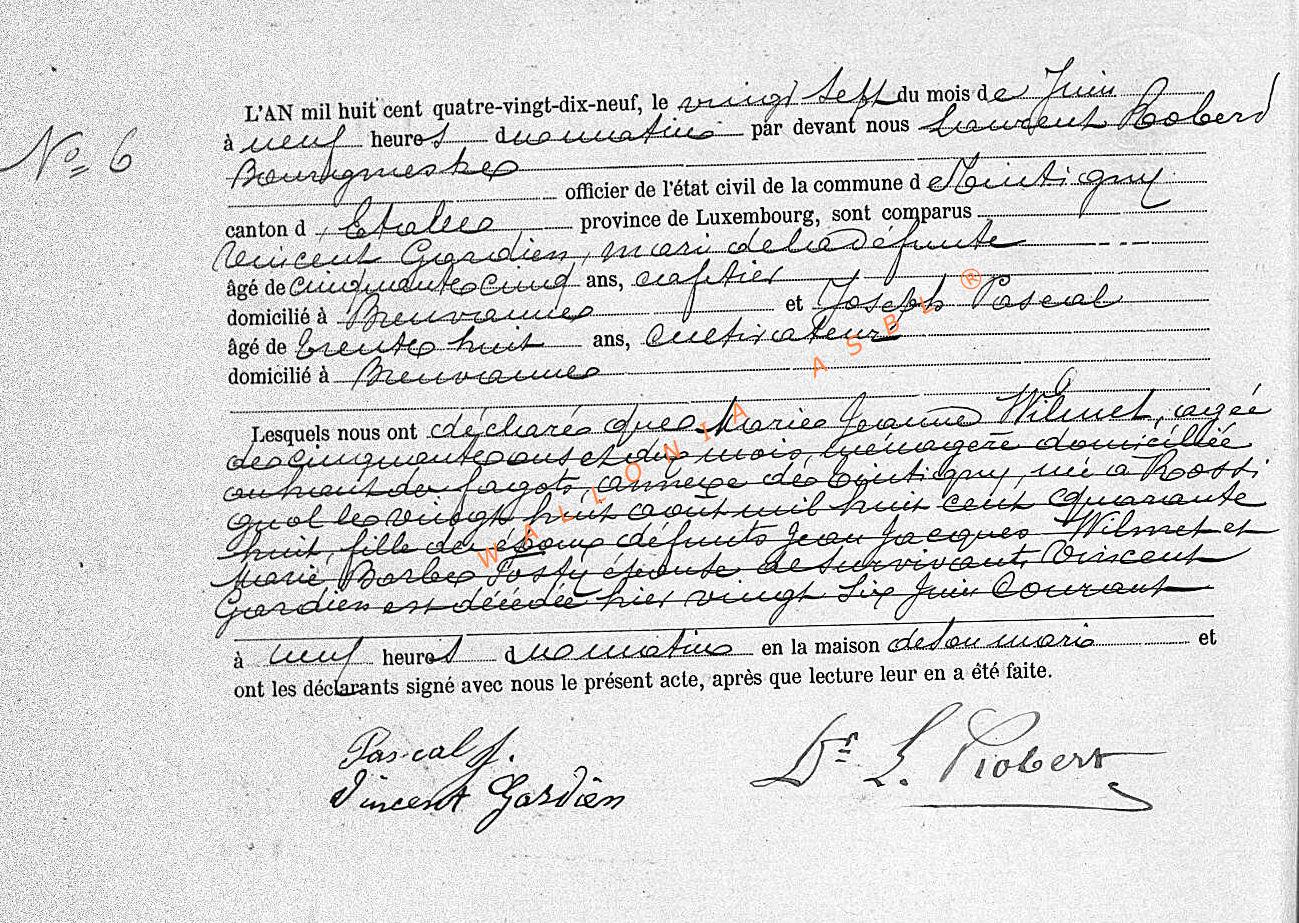 Nº 6
L'AN mil huit cent quatre-vingt-dix-neuf, le vingt sept du mois de Juin
à neuf heures du matin par devant nous Laurent Robert
Bourgmestre
officier de l'état civil de la commune de Tintigny
canton d'Etalle province de Luxembourg, sont comparus
Vincent Gardien, mari de la défunte
âgé de cinquante cinq ans, cafetier
domicilié à Breuvanne et Joseph Pascal
âgé de trente huit ans, cultivateur
domicilié à Breuvanne
Lesquels nous ont déclaré que Marie Jeanne Wilmet, agée
de cinquante ans et dix mois, ménagère domiciliée
au haut de fagots, annexe de Tintigny, née a Rossi
gnol le vingt huit août mil huit cent quarante
huit, fille de époux défunts Jean Jacques Wilmet et
Marie Barbe épouse de survivant Vincent
Gardien est décédée hier vingt six Juin Courant
à neuf heures du matin en la maison de son mari et
ont les déclarants signé avec nous le présent acte, après que lecture leur en a été faite.
Pascal J.
Vincent Gardien
Dr L. Robert
WALLONIA ASBL ®